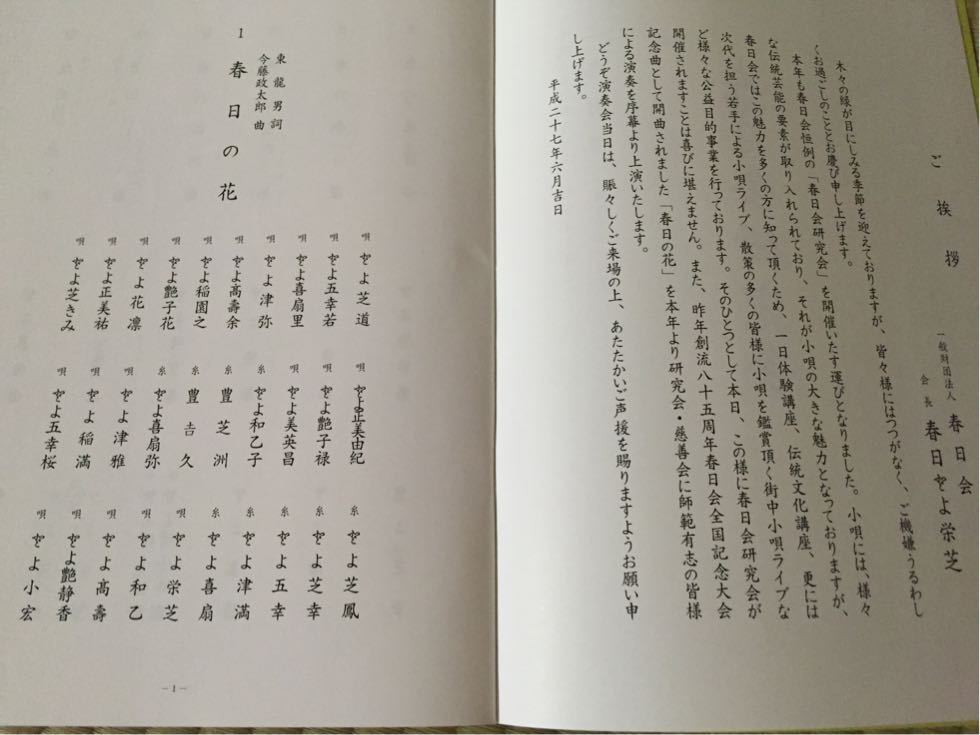 ご挨拶
一般財団法人 春日会
会長 春日とよ栄芝
木々の緑が目にしみる季節を迎えておりますが、皆々様にはつつがなく、ご機嫌うるわし
くお過ごしのこととお慶び申し上げます。
本年も春日会恒例の「春日会研究会」を開催いたす運びとなりました。小唄には、様々
な伝統芸能の要素が取り入れられており、それが小唄の大きな魅力となっておりますが、
春日会ではこの魅力を多くの方に知って頂くため、一日体験講座、伝統文化講座、更には
次代を担う若手による小唄ライブ、散策の多くの皆様に小唄を鑑賞頂く街中小唄ライブな
ど様々な公益目的事業を行っております。そのひとつとして本日、この様に春日会研究会が
開催されますことは喜びに堪えません。また、昨年創流八十五周年春日会全国記念大会
記念曲として開曲されました「春日の花」を本年より研究会・慈善会に師範有志の皆様
による演奏を序幕より上演いたします。
どうぞ演奏会当日は、賑々しくご来場の上、あたたかいご声援を賜りますようお願い申
し上げます。
平成二十七年六月吉日
1 春日の花
東龍男 詞
今藤政太郎 曲
唄 とよ芝道
唄 とよ五幸若
唄 とよ喜扇里
唄 とよ津弥
唄 とよ高壽余
唄 とよ稲園之
唄 とよ艶子花
唄 とよ花凛
唄 とよ正美祐
唄 とよ芝きみ
唄 とよ正美由紀
唄 とよ艶子禄
唄 とよ美英昌
糸 とよ和乙子
糸 豊芝洲
糸 豊吉久
糸 とよ喜扇弥
唄 とよ津雅
唄 とよ稲満
唄 とよ五幸桜
糸 とよ芝鳳
糸 とよ芝幸
糸 とよ五幸
糸 とよ津満
糸 とよ喜扇
唄 とよ栄芝
唄 とよ和乙
唄 とよ高壽
唄 とよ艶静香
唄 とよ小宏
－1－